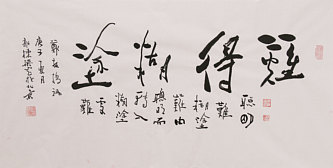 難得糊塗
聰明
難
糊塗
難由
聰明而
轉入
糊塗
更難
鄭板橋語
庚子夏月